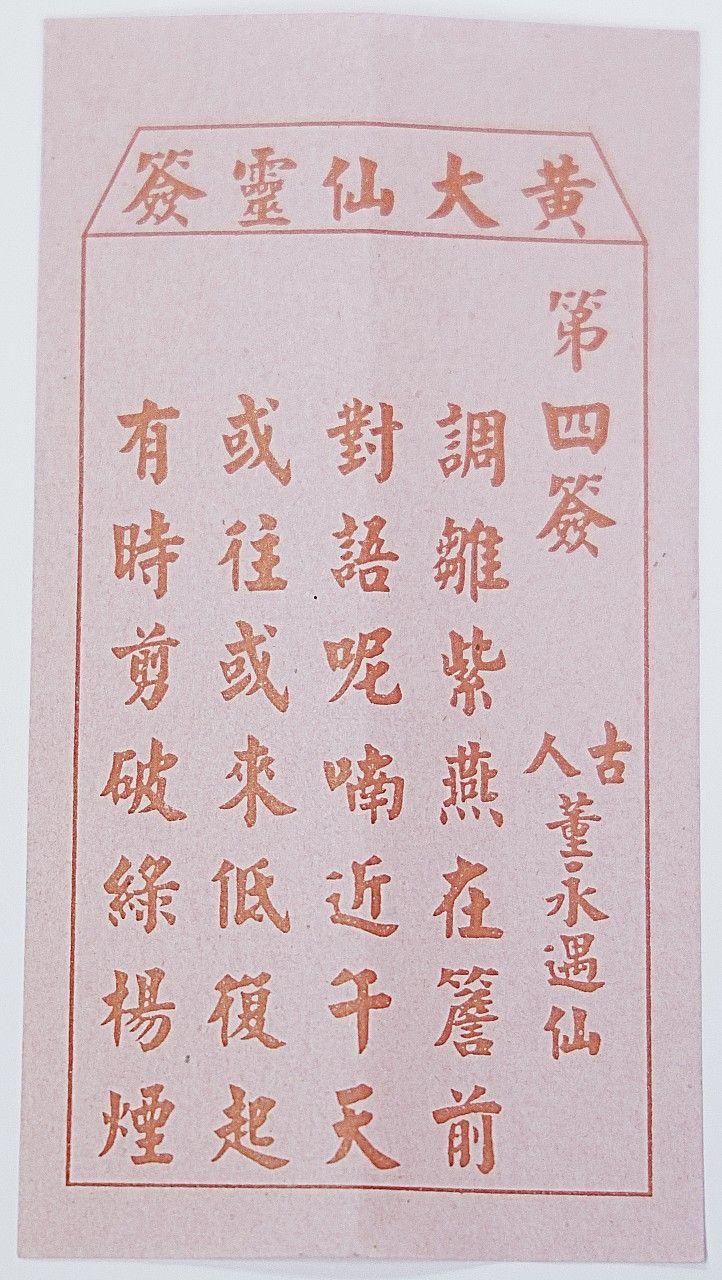 黄大仙靈簽
第四簽
古人
董永遇仙
調雛紫燕在簷前
對語呢喃近午天
或往或來低復起
有時剪破綠楊煙